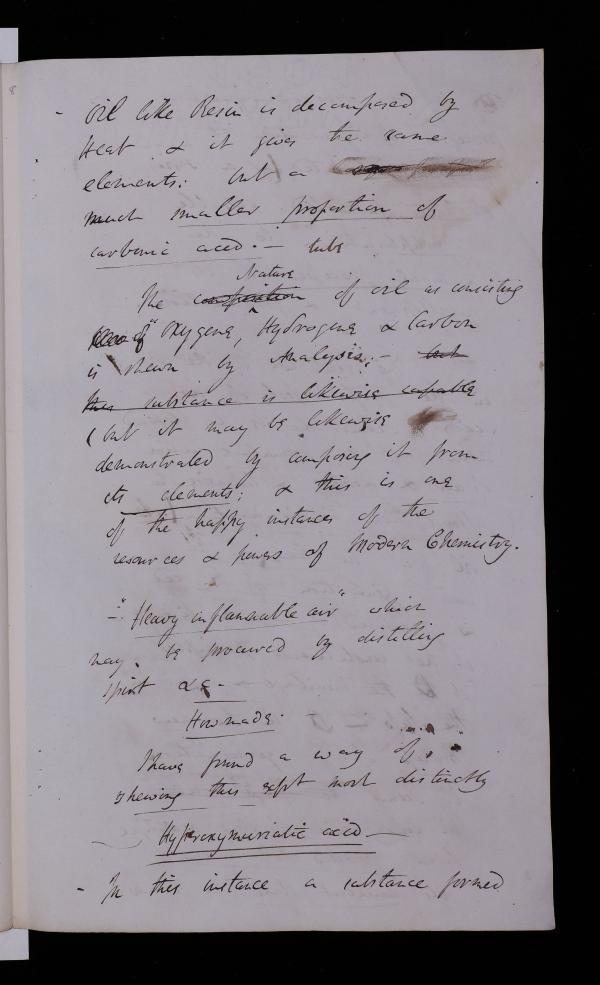 - Oil like Resin is decomposed by
Heat & it gives the same
elements: but a
much smaller proportion of
carbonic acid. - tube
Nature
The composition of oil as consisting
of Oxygene, Hydrogene & Carbon
is shewn by Analysis; - but
this substance is likewise capable
(but it may be likewise
demonstrated by composing it from
its elements; & this is one
of the happy instances of the
resources & powers of Modern Chemistry.
- "Heavy inflammable air" which
may be procured by distilling
spirit &c -
How made.
I have found a way of
shewing this expt most distinctly
Hyperoxymuriatic acid -
- In this instance a substance formed